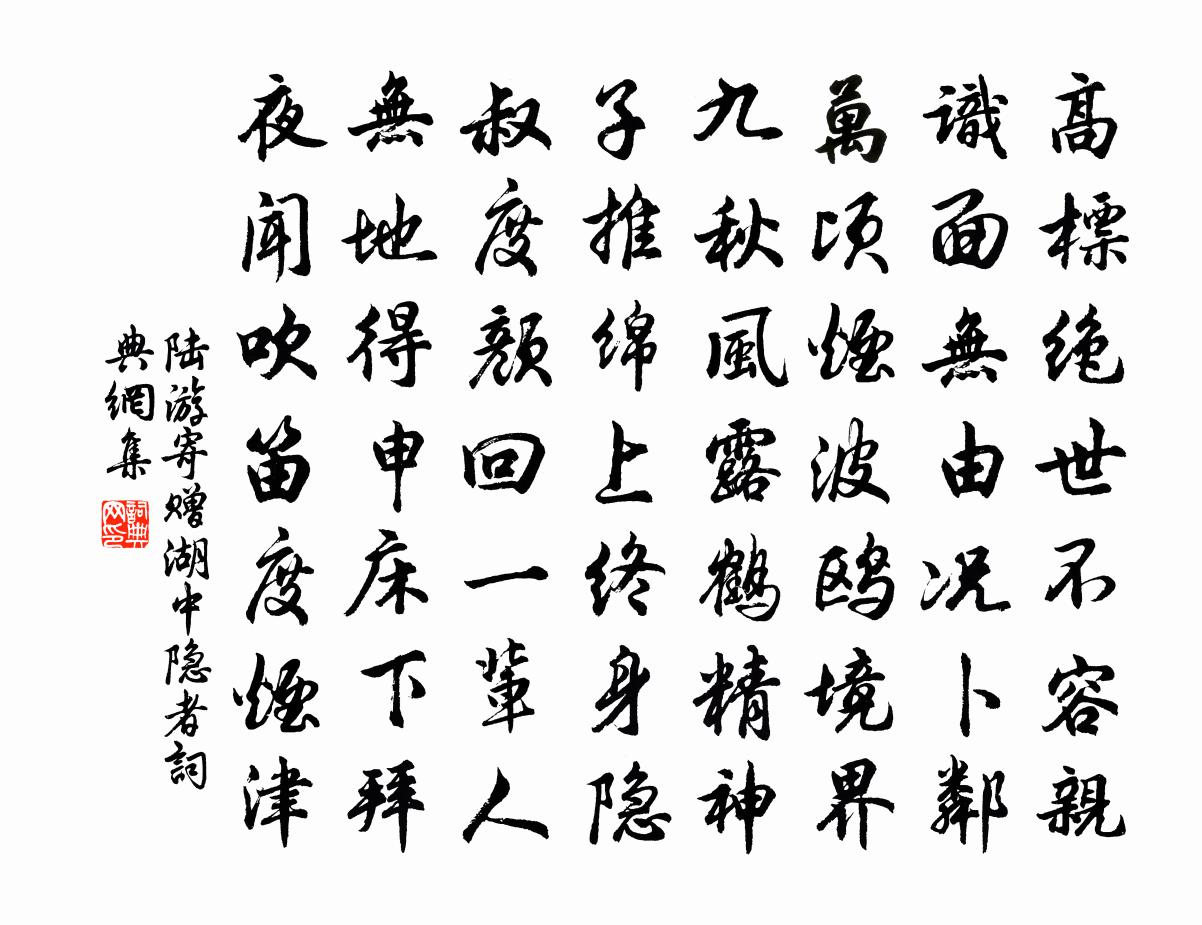 高標絶世不容親
識面無由况卜鄰
萬頃煙波鸥境界
九秋風露鹤精神
子推绵上终身隐
叔度颜回一輩人
無地得申床下拜
夜聞吹笛度煙津
陆游寄赠湖中隐者詞
典網集
詞典
网印